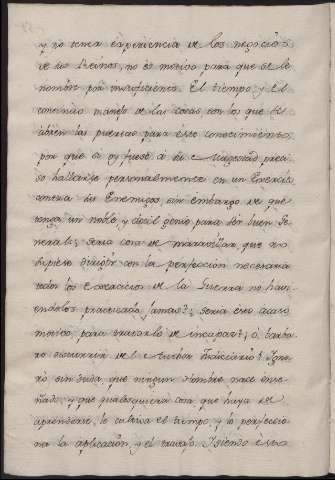 y no tener experiencia de los negocios
de sus Reinos, no es motivo para que se le
nombre por insuficiente. El tiempo, y el
continuo manejo de las cosas son los que le
abren las puertas para este conocimiento,
por que si oy fuese a su Magestad preci
so hallarse personalmente en un Exercito
contra sus Enemigos, sin embargo de que
tenga un noble y docil genio para ser buen Ge
neral; seria cosa de maravillar que no
supiese dirigir con la perfeccion necesaria
todos los exercicios de la Guerra no havi
endolos practicado jamas? seria esto acaso
motivo para tratarlo de incapaz? o
discurrir de el
ro sin duda que ningun Hombre nace ense
ñado, y que qualesquiera cosa que haya de
aprenderse, le cultiva el tiempo, y lo perfeccio
na la aplicacion, y el travajo. Y siendo esto